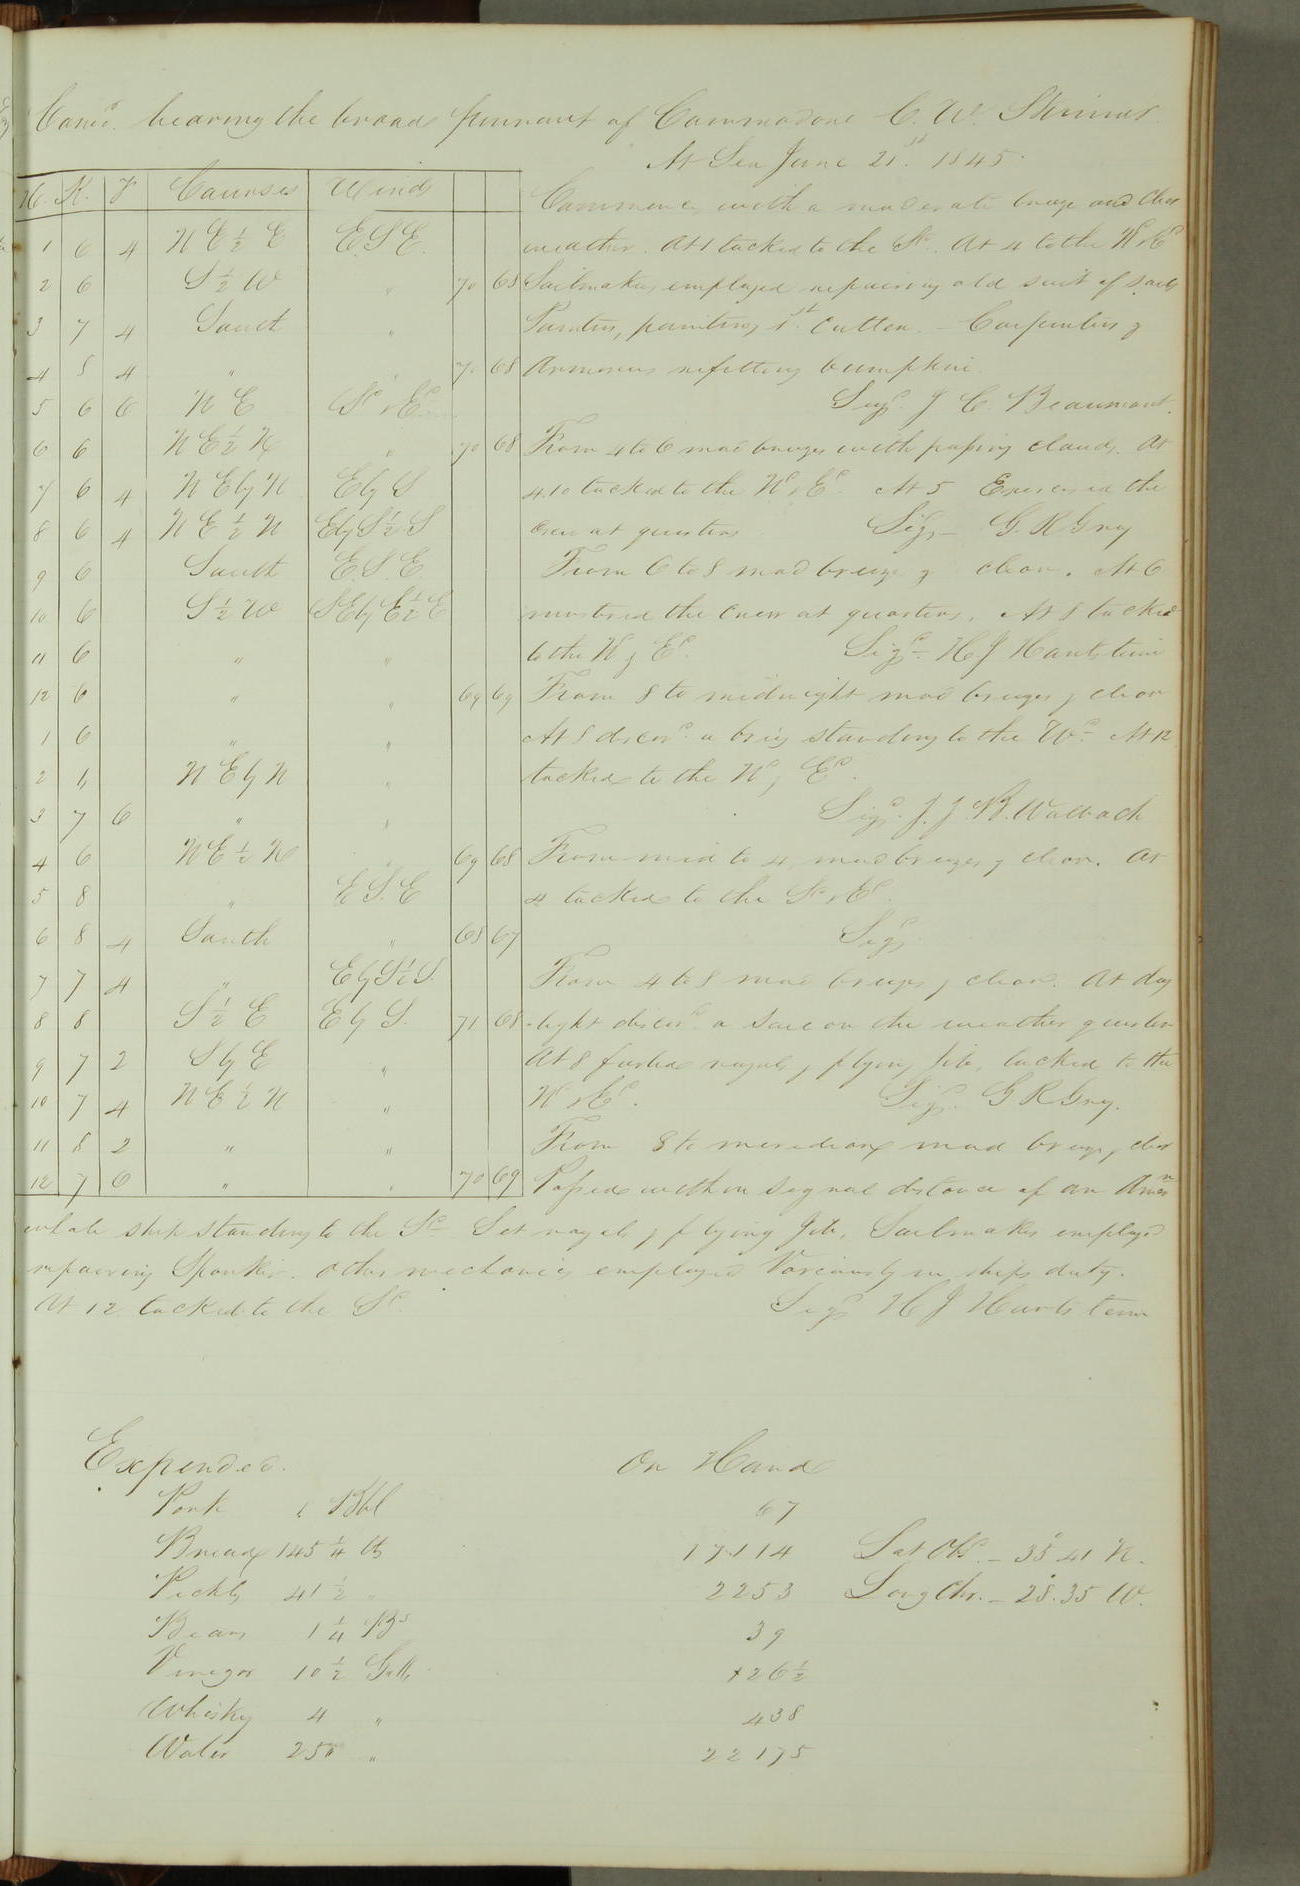 Com'd. bearing the broad pennant of Commodore C. W. Skinner
At Sea June 21st. 1845.
H. K. F Courses Winds
1 6 4 N E ½ E E. S E.
2 6 S ½ W " 70 68
3 7 4 South "
4 8 4 " " 70 68
5 6 6 N E Sd & Ed
6 6 N E ½ N " 70 68
7 6 4 N E by N E by S
8 6 4 N E ½ N E by S ½ S
9 6 South E. S. E.
10 6 S ½ W S E by E ½ E
11 6 " "
12 6 " " 69 69
1 6 " "
2 " N E by N "
3 7 6 " "
4 6 N E ½ N " 69 68
5 8 " E S. E
6 8 4 South " 68 67
7 7 4 " E by S ½ S.
8 8 S ½ E E by S. 71 68
9 7 2 S by E "
10 7 4 N E ½ N "
11 8 2 " "
12 7 6 " " 70 69
Commences with a moderate breeze and clear
weather. At 1 tacked to the Sd. At 4 to the Nd & Ed
Sailmakers employed repairing old suit of sails
Painters, painting 1st. Cutter. - Carpenters &
Armorers refitting bumpkin.
Sigd. J C. Beaumont.
From 4 to 6 mod breezes with passing clouds. At
4.10 tacked to the Nd & Ed. At 5 Exercised the
crew at quarters Sigd - G. R Gray
From 6 to 8 mod breeze & clear. At 6
mustered the crew at quarters. At 8 tacked
to the Nd & Ed. Sigd - H J Hartstene
From 8 to midnight mod breezes & clear
At 8 discovd. a brig standing to the Wd - At 12
tacked to the Nd & Ed.
Sigd. J. J. B. Walbach
From mid to 4 mod breezes & clear. At
4 tacked to the Sd & Ed.
Sigd.
From 4 to 8 mod breezes & clear. At day
-light discovd. a Sail on the weather quarter
At 8 furled royals & flying Jib, tacked to the
Nd & Ed. Sigd. G R Gray.
From 8 to meridian mod breeze & clear
Passed within signal distance of an Amern
whale ship standing to the Sd - Set royals & flying Jib, Sailmakers employd
repairing Spanker. Other mechanics employed Variously in ships duty.
At 12 tacked to the Sd. Sigd H J Hartstene
Expended. On Hand
Pork 1 Bbl 67
Bread 145 ¼ lbs 17114 Lat Obs. - 38° 41 N.
Pickls 41 ½ " 2253 Long Chr. - 28°. 35 W.
Beans 1 ¼ Bs 39
Vinegar 10 ½ Galls. 26 ½
Whisky 4 " 438
Water 250 " 22175